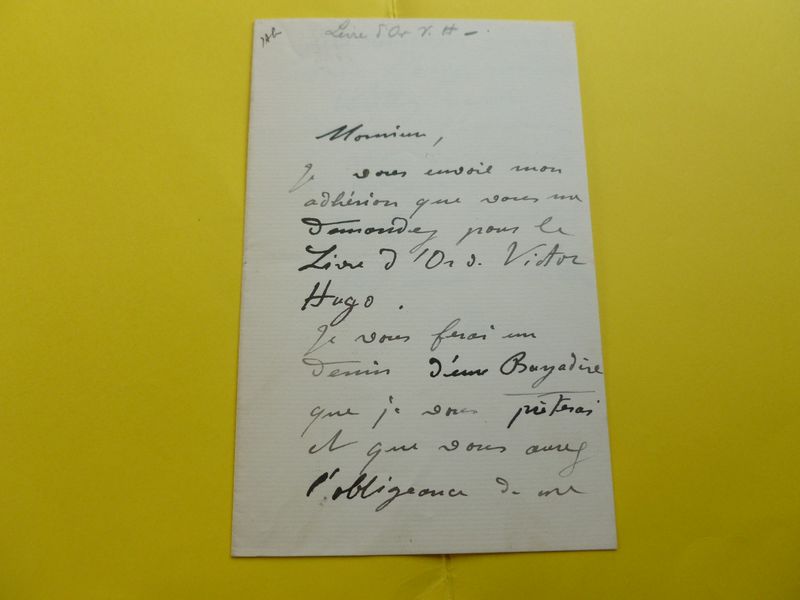 Livre d'Or V. H -
Monsieur,
Je vous envoie mon
adhésion que vous me
demandez pour le
Livre d'Or d. Victor
Hugo.
Je vous ferai un
dessin d'une Bayadère
que je vous prêterai
et que vous aurez
l'obligeance de me